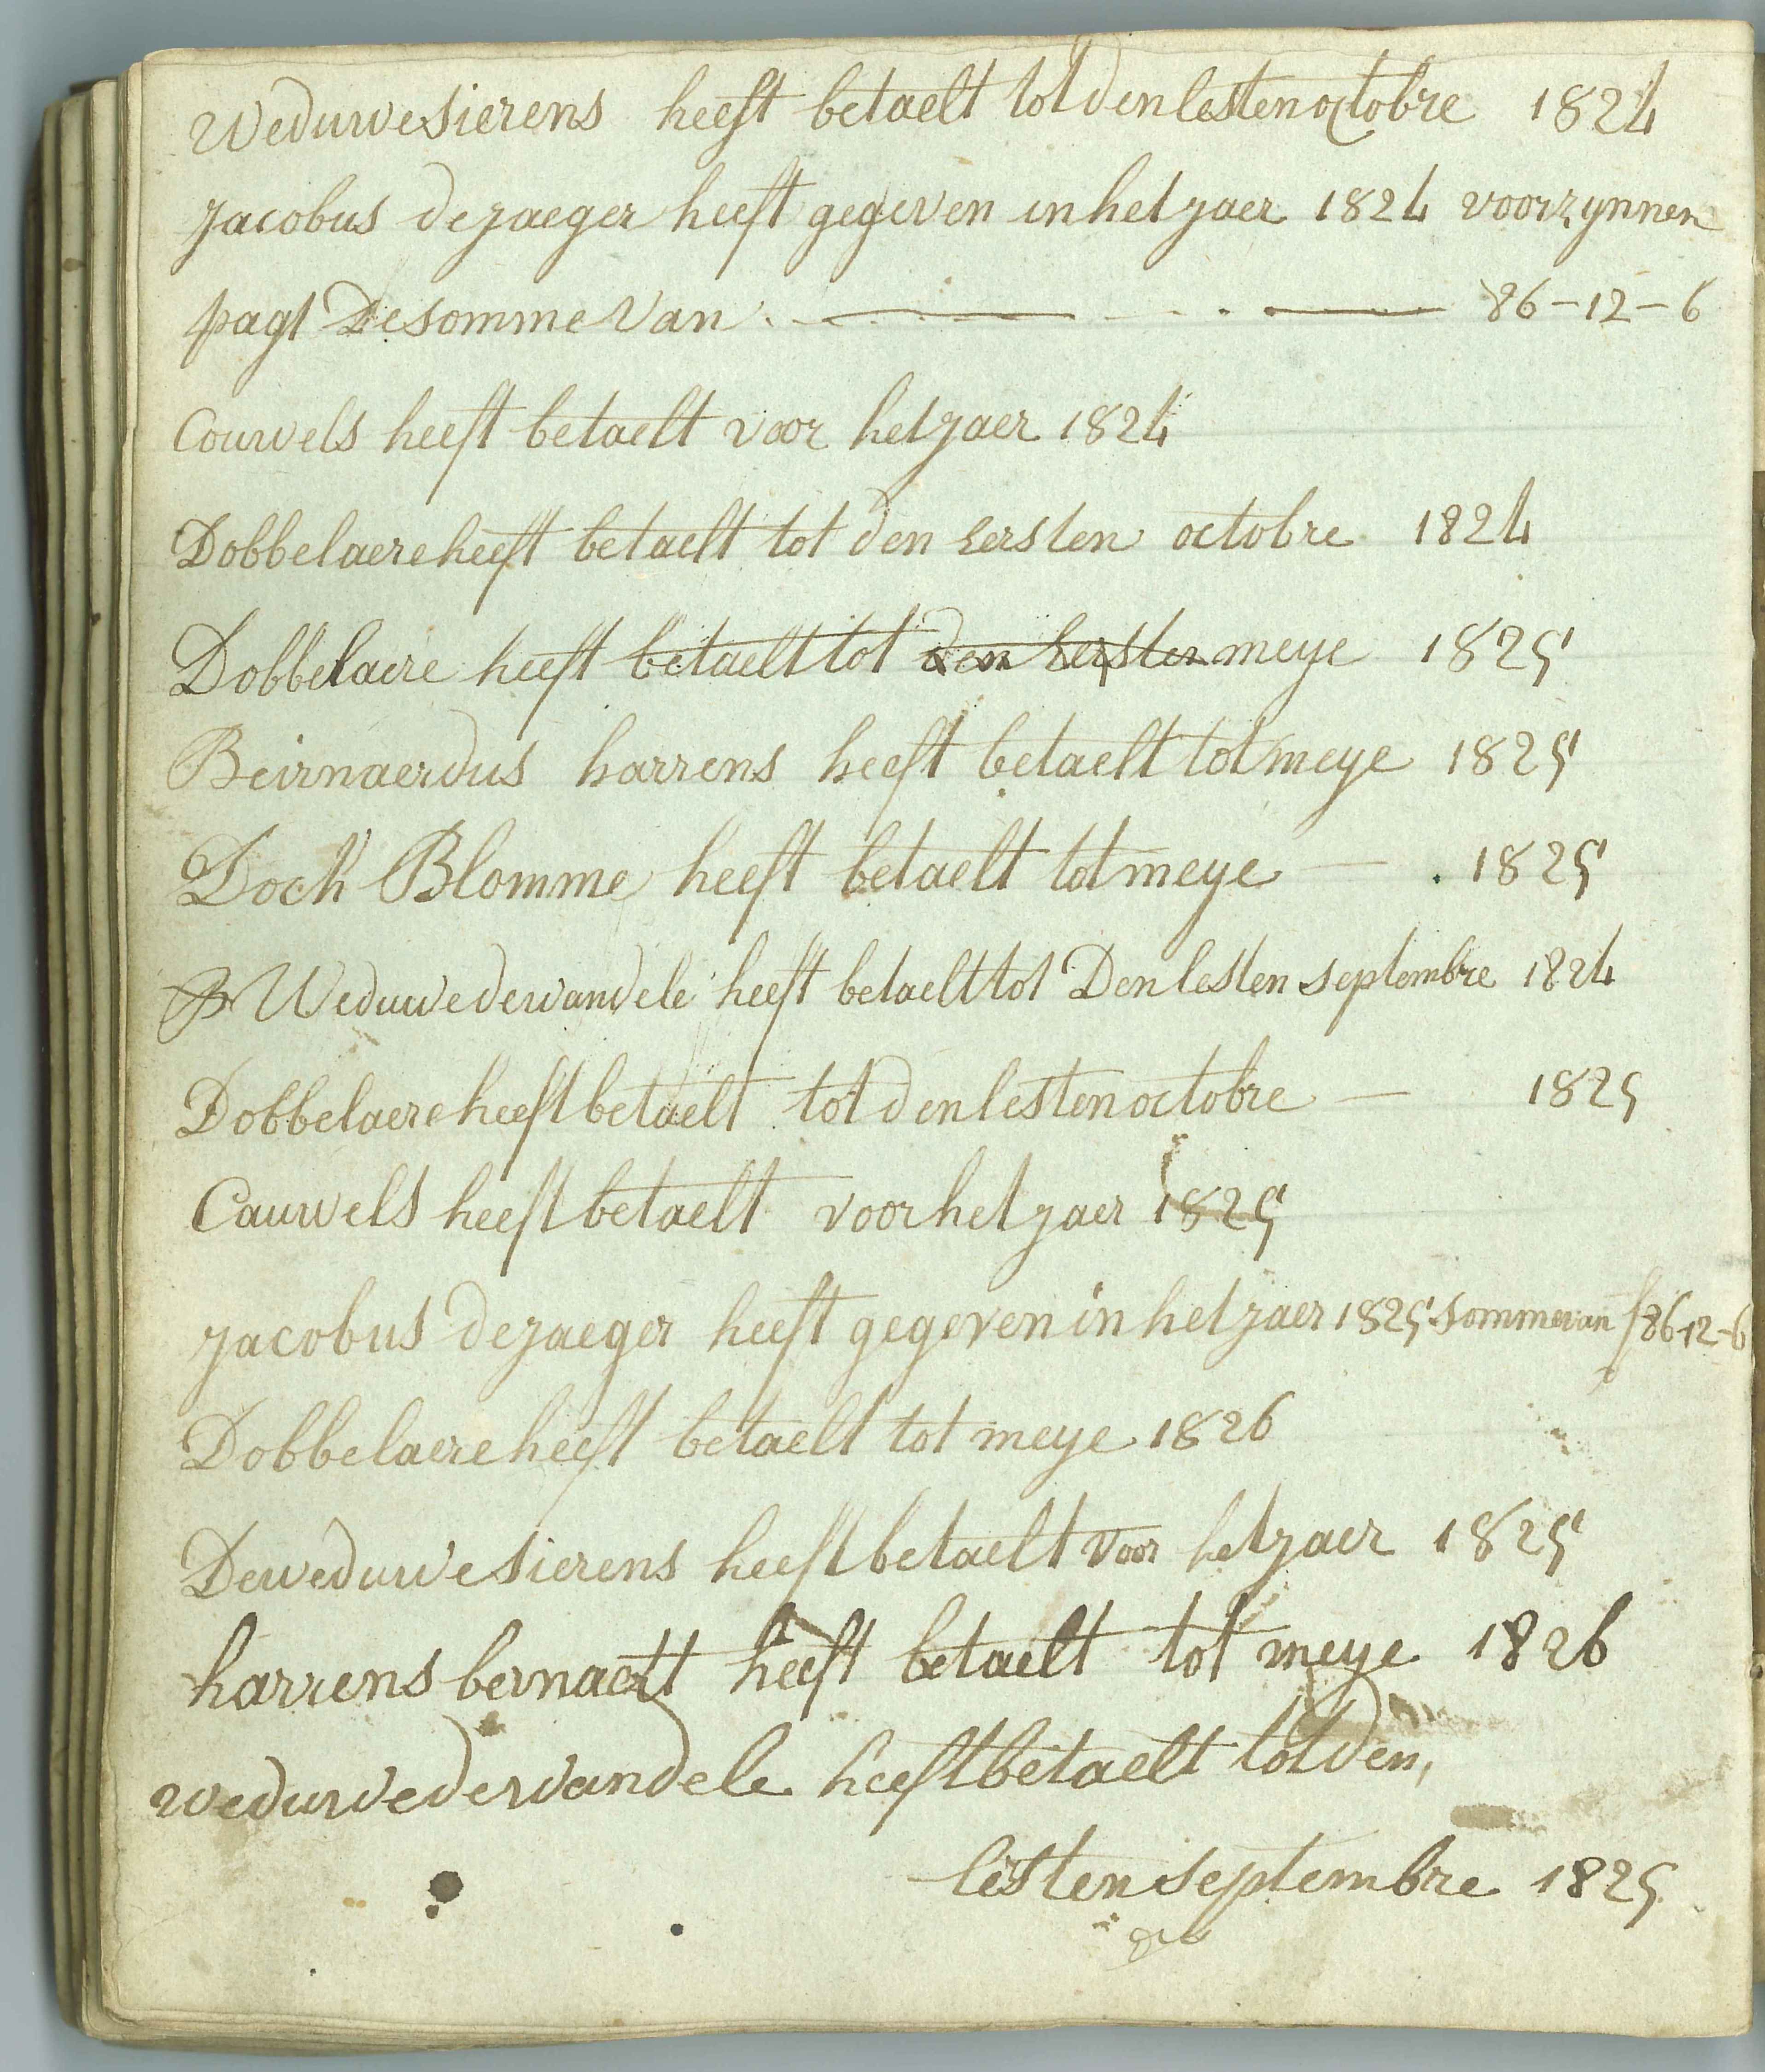 Weduwe sierens heeft betaelt tot den lesten octobre 1824
jacobus dejaeger heeft gegeven in het jaer 1824 voor zynnen
pagt De somme van 86-12-6
Couwels heeft betaelt voor het jaer 1824
Dobbelaere heeft betaelt tot den eersten octobre 1824
Dobbelaere heeft betaelt tot den eersten meye 1825
Beirnaerdus harrens heeft betaelt tot meye 1825
Dock Blomme heeft betaelt tot meye 1825
Weduwe dewandele heeft betaelt tot Den lesten septembre 1824
Dobbelaere heeft betaelt tot den lesten octobre 1825
Cauwels heeft betaelt voor het jaer 1825
jacobus dejaeger heeft gegeven in het jaer 1825 somme van f 86-12-6
Dobbelaere heeft betaelt tot meye 1826
De weduwe sierens heeft betaelt voor het jaer 1825
harrens bernaert heeft betaelt tot meye 1826
weduwe dewandele heeft betaelt tot den
lesten septembre 1825